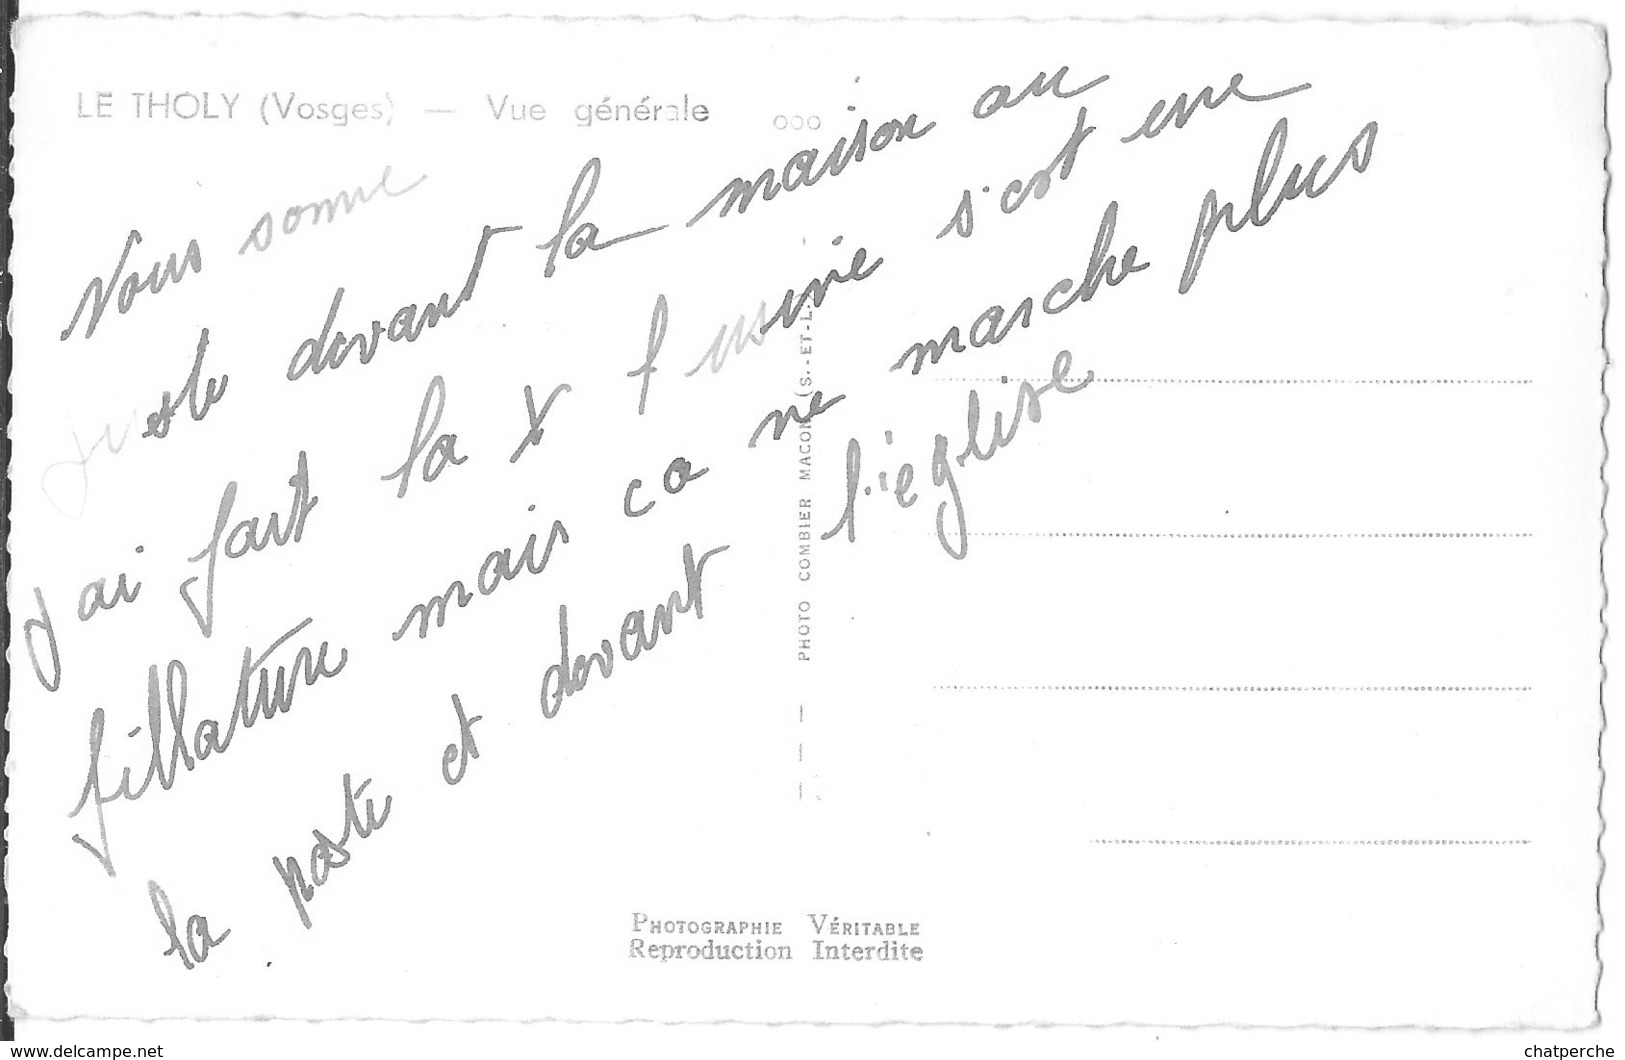 LE THOLY (Vosges) — Vue générale
ooo
Nous somme
juste devant la maison au
j'ai fait la x l usine s'est une
fillature mais ca ne marche plus
la poste et devant l'église
PHOTO COMBIER MACON (S.-ET-L.)
PHOTOGRAPHIE VÉRITABLE
Reproduction Interdite
www.delcampe.net
chatperche